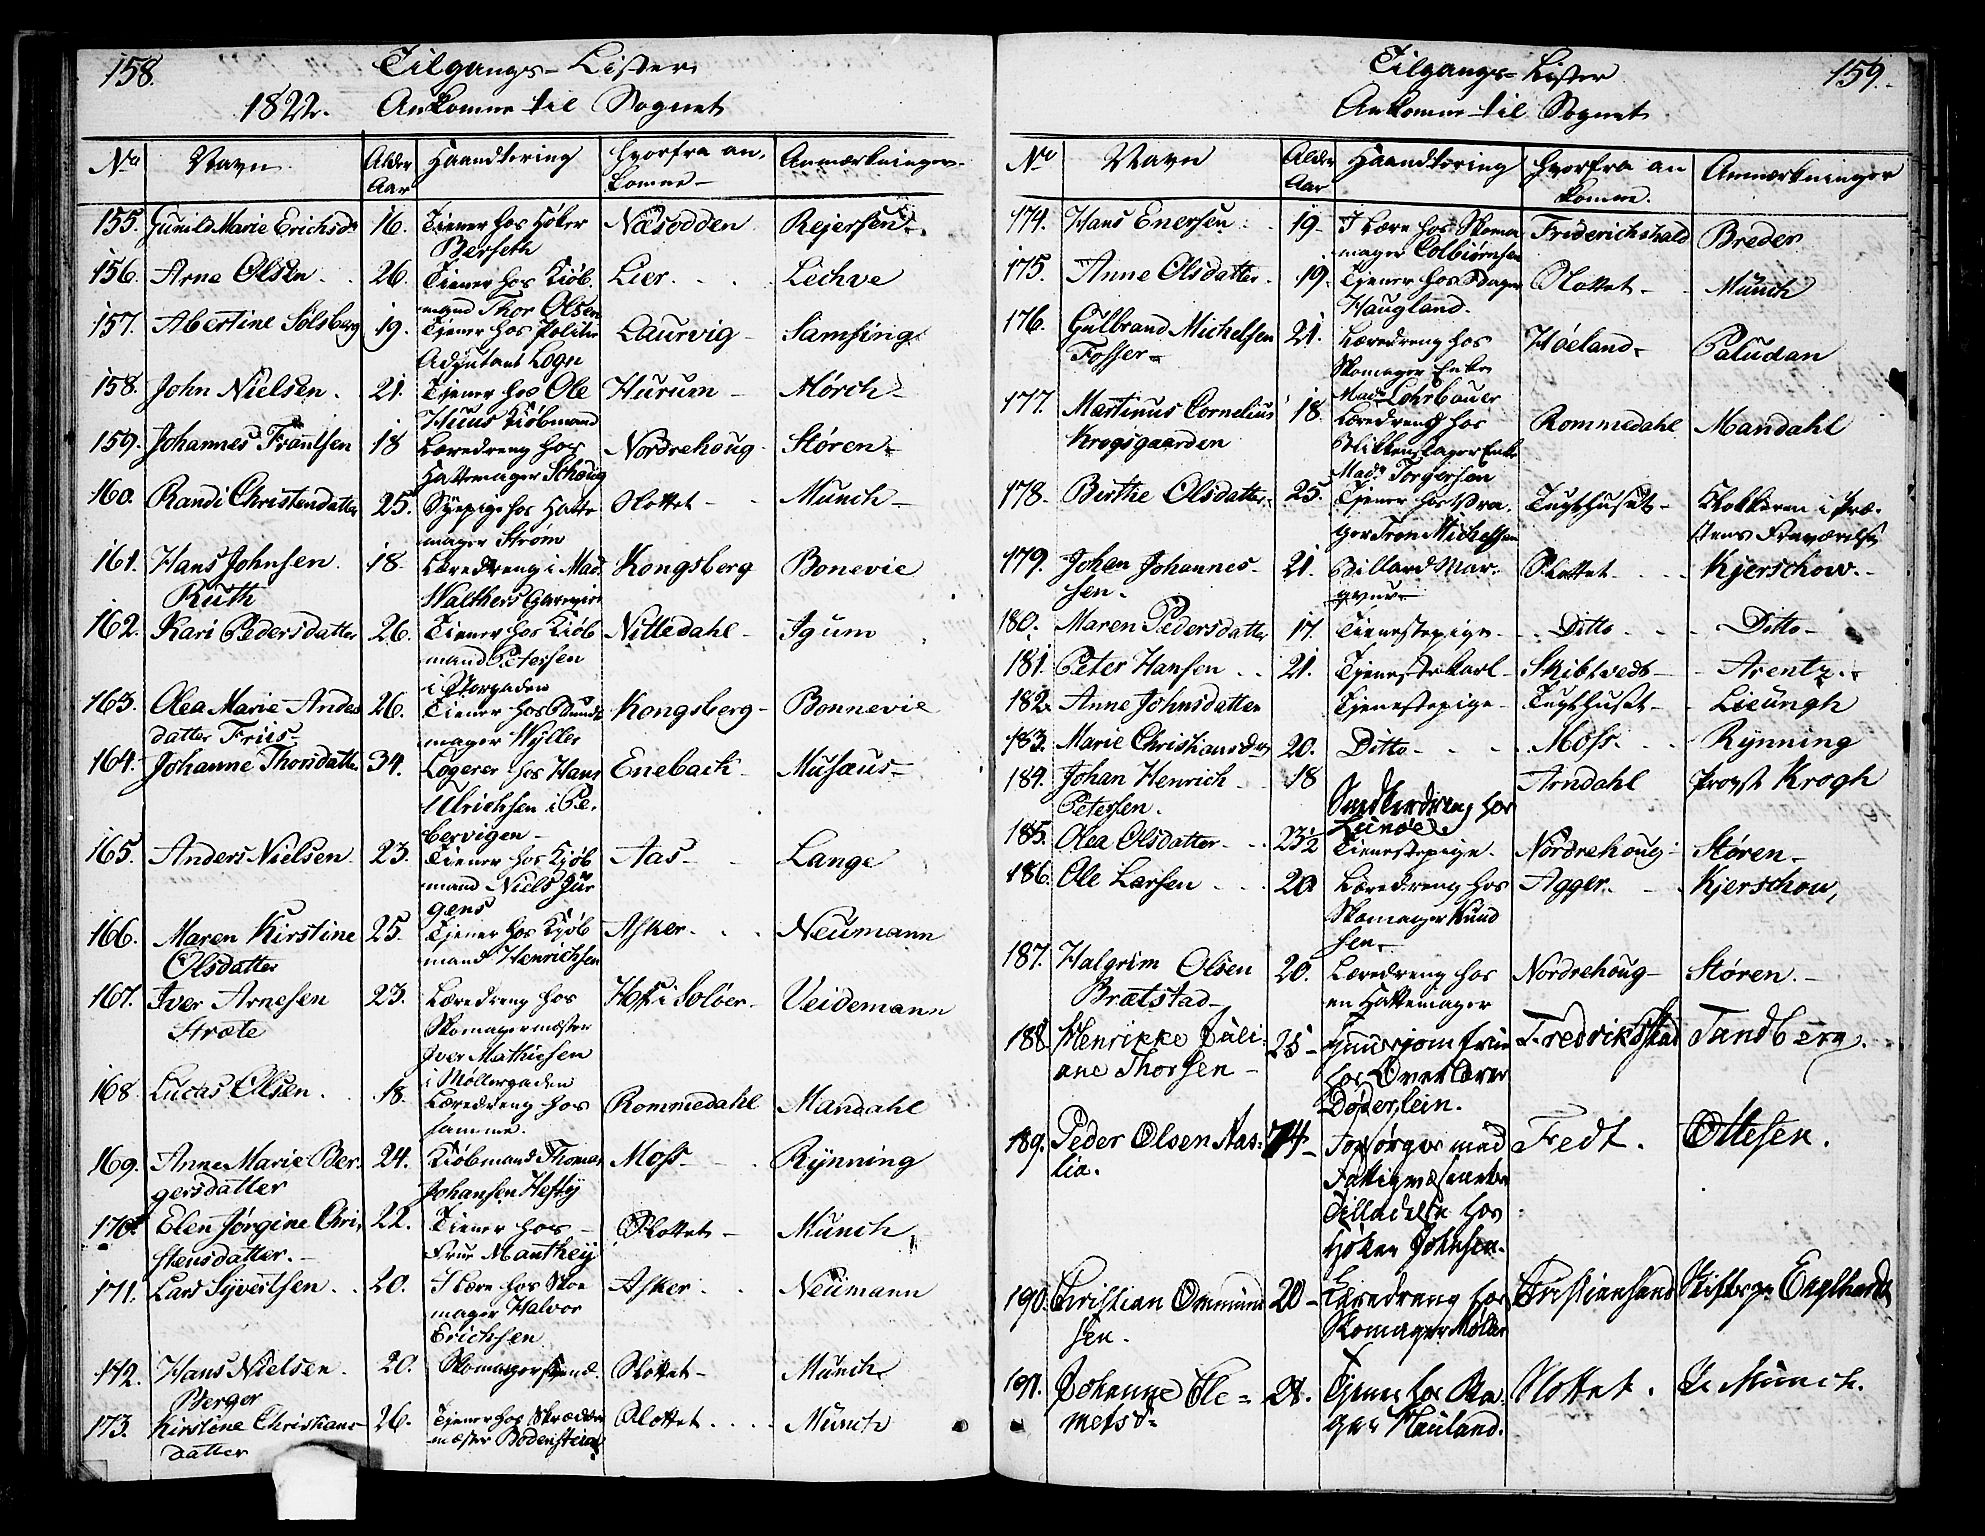 158.
Tilgangs-Lister
1822. Ankomne til Sognet
No Navn Alder Aar Haandtering Hvorfra ankomne Anmærkninger
155. Gunild Marie Erichsdr 16. Tiener hos Høker Berseth Næsodden Rejersen
156. Arne Olsen 26. Tiener hos Kiøbmand Thor Olsen Lier Lechve
157. Abertine Solsberg 19. Tiener hos Politie Adjutant Logn Laurvig Samsing
158. John Nielsen 21. Tjener hos Ole Huus Kiøbmand Hurum Mørch
159. Johannes Frantsen 18 Læredreng hos Hattemager Schoug Nordrehoug Støren
160. Randi Christendatter 25. Syepige hos Hattemager Strøm Slottet Munch
161. Hans Johnsen Ruth 18. Læredreng i Mad. Walthers Kongsberg Bonevie
162. Kari Pedersdatter 26. Tiener hos Kiøbmand Petersen i Storgaden Nittedahl Igum
163. Olea Marie Andersdatter Friis 26. Tiener hos Bundtmager Wyller Kongsberg Bonnevie
164. Johanne Thorsdatter 34. Logerer hos Hans Ulrichsen i Pebervigen Eneback Musæus
165. Anders Nielsen 23. Tiener hos Kjøbmand Niels Jürgens Aas Lange
166. Maren Kirstine Olsdatter 25. Tjener hos Kjøbmand Henrichsen Asker Neumann
167. Iver Arnesen Stræte 23. Læredreng hos Skomagermæster Iver Mathiesen i Møllergaden Hof i Soløer Veidemann
168. Lucas Olsen 18. Læredreng hos samme. Rommedahl Mandahl
169. Anne Marie Bergersdatter 24. Kiøbmand Thomas Johansen Hefty Moss Rynning
170. Elen Jørgine Christensdatter 22. Tiener hos Frue Manthey Slottet Münch
171. Lars Syvertsen 20. I Lære hos Skomager Halvor Erichsen Asker Neumann
172. Hans Nielsen Berger 20. Skomagersvend Slottet Münch
173. Kirstine Christiansdatter 26. Tjener hos Skrædermæster Bodenstein Slottet Münch
159.
Tilgangs-Lister
Ankomne til Sognet
No Navn Alder Aar Haandtering Hvorfra ankomne. Anmærkninger
174. Hans Enersen 19 I Lære hos Skomager Colbiørnsen Friderichshald Breder
175. Anne Olsdatter 19. Tjener hos Haugland. Slottet Münch
176. Gulbrand Michelsen Fosser 21. Læredreng hos Skomager Enke Mad. Lohrbauer Høeland Paludan
177. Martinus Cornelius Krogsgaarden 18 Læredreng hos Blikkenslager Enke Mad. Torgersen Rommedahl Mandahl
178. Birthe Olsdatter 25. Tjener hos Vrager Tron Michelsen Tugthuset Klokkeren i Præstens Fraværelse
179. Johan Johannessen. 21. Billard Marqveur Slottet Kjerschow
180. Maren Pedersdatter 17. Tienestepige Ditto Ditto
181. Peter Hansen 21. Tjenestekarl Skibtvedt Arentz
182. Anne Johnsdatter Tjenestepige Tugthuset Lieungh
183. Marie Christiansdr 20. Ditto Moss Rynning
184. Johan Henrich Petersen. 18 Snedkerdreng hos Lunøe Arndahl Provst Krogh
185. Olea Olsdatter 23½ Tienestepige Nordrehoug Støren
186. Ole Larsen 20 Læredreng hos Skomager Knudsen Agger Kjerschow,
187. Halgrim Olsen Brætstad 20. Læredreng hos en Hattemager Nordrehoug Støren
188. Henrikke Juliane Thorsen 25 Huusjomfrue hos Overlærer Døderlein. Fredrikstad Tandberg.
189. Peder Olsen Aaslia. 74 Forsørges med Fattigvæsenets Tilladelse hos Høker Johnsen. Fedt. Ottesen.
190. Christian Ommundsen. 20 Læredreng hos Skomager Møller Christiansand Stiftspr. Englhardt
191. Johanne Clemetsd. 28. Tjener hos Bager Hauland. Slottet. Münch.